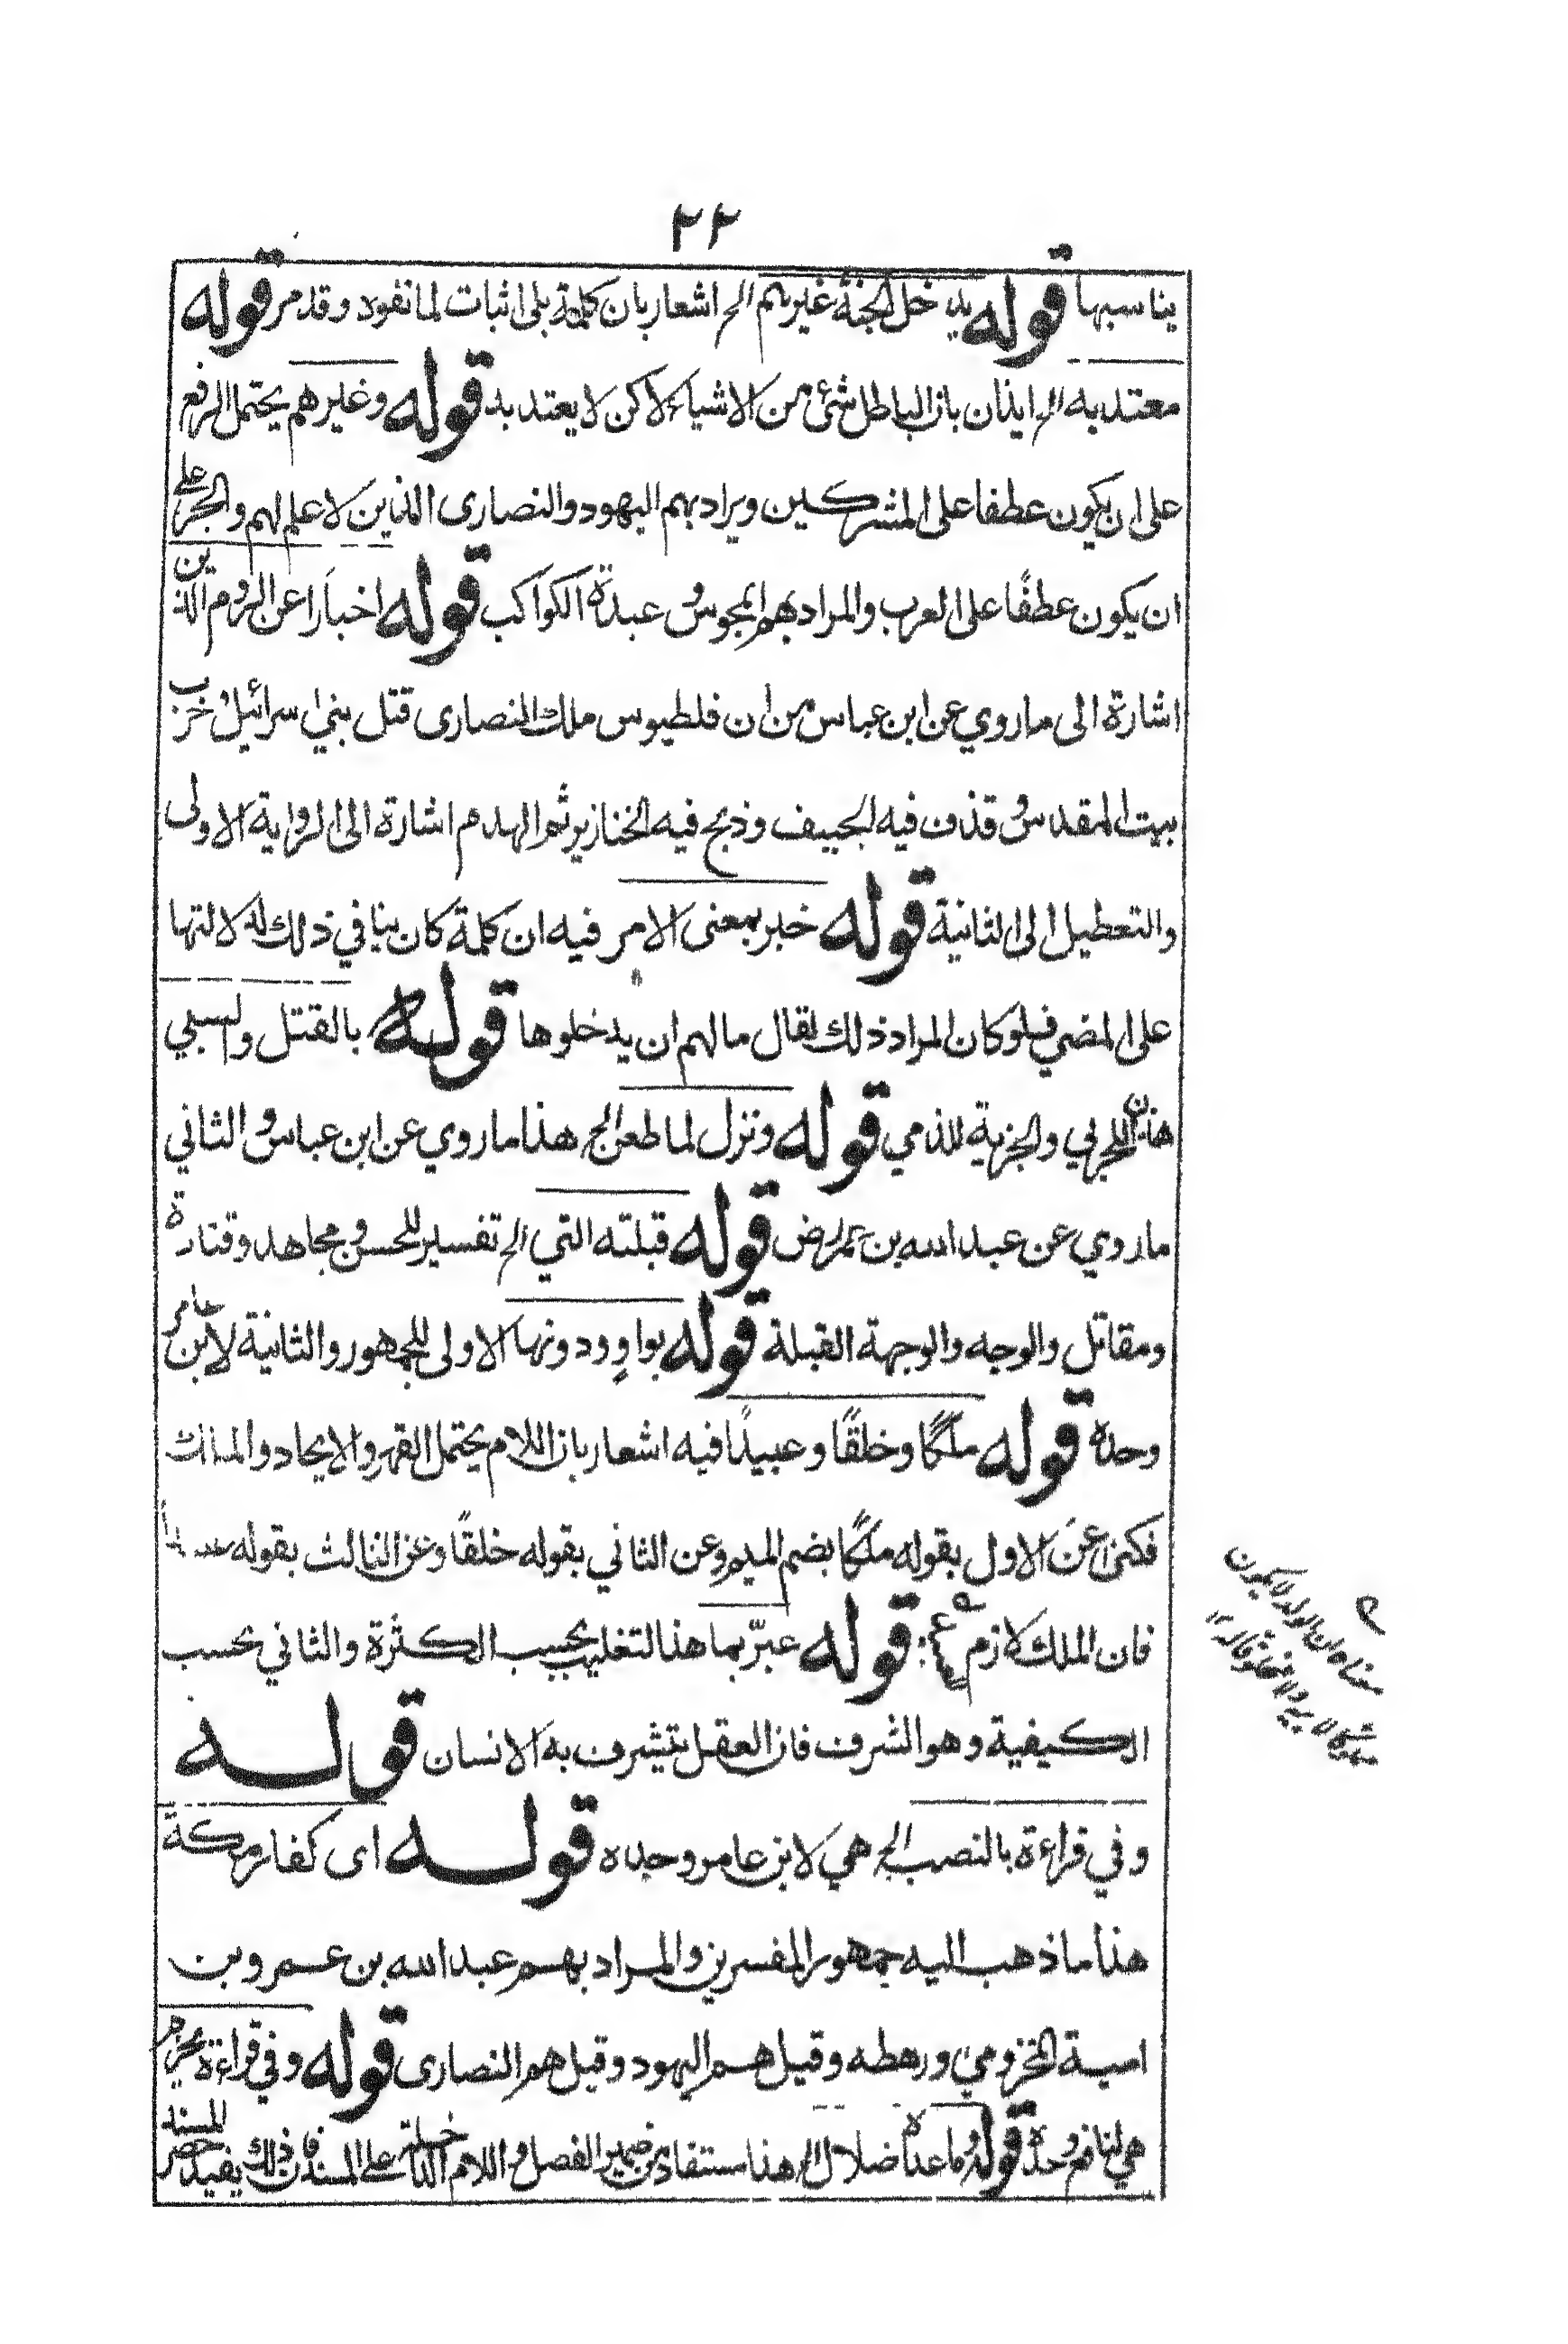 ٢٢
يناسبها قوله يدخل الجنة غيرهم الخ اشعار بان كلمة بلى اثبات لما نفوه وقد مر قوله
معتد به الخ ايذان بان الباطل شئ من الاشياء لاكن لا يعتد به قوله وغيرهم يحتمل الرفع
على ان يكون عطفا على المشركين ويراد بهم اليهود والنصارى الذين لا علم لهم والجر على
ان يكون عطفًا على العرب والمراد بهم المجوس و عبدة الكواكب قوله اخبارا عن الروم الذين
اشارة الى ما روي عن ابن عباس من ان فلطيوس ملك النصارى قتل بني اسرائيل و خرب
بيت المقدس و قذف فيه الجيف وذبح فيه الخنازير ثم الهدم اشارة الى الرواية الاولى
والتعطيل الى الثانية قوله خبر بمعنى الامر فيه ان كلمة كان ينافي ذلك له لالتها
على المضي فلو كان المراد ذلك لقال ما لهم ان يدخلوها قوله بالقتل والسبي
هذان للحربي والجزية للذمي قوله ونزل لما طعن الخ هذا ما روي عن ابن عباس و الثاني
ما روي عن عبد الله بن عمر رض قوله قبلته التي الخ تفسير للحسن و مجاهد وقتادة
ومقاتل والوجه والوجهة القبلة قوله بواوٍ ودونها الاولى للجمهور والثانية لابن عامر
وحده قوله ملكًا وخلقًا وعبيدًا فيه اشعار بان اللام يحتمل القهر والايجاد والملك
فكنى عن الاول بقوله ملكًا بضم الميم وعن الثاني بقوله خلقًا وعن الثالث بقوله
فان الملك لازم قوله عبّر بما هذا لتغليب بحسب الكثرة والثاني بحسب
الكيفية وهو الشرف فان العقل يتشرف به الانسان قوله
وفي قراءة بالنصب الخ هي لابن عامر وحده قوله اى كفار مكة
هذا ما ذهب اليه جمهور المفسرين والمراد بهم عبد الله بن عمرو بن
امية المخزومي ورهطه وقيل هم اليهود وقيل هم النصارى قوله وفي قراءة بجزم
هي لنافع وحده قوله وما عداه ضلال الخ هذا مستفاد من ضمير الفصل و اللام الداخلة على المسند فان ذلك يفيد حصر للمسند